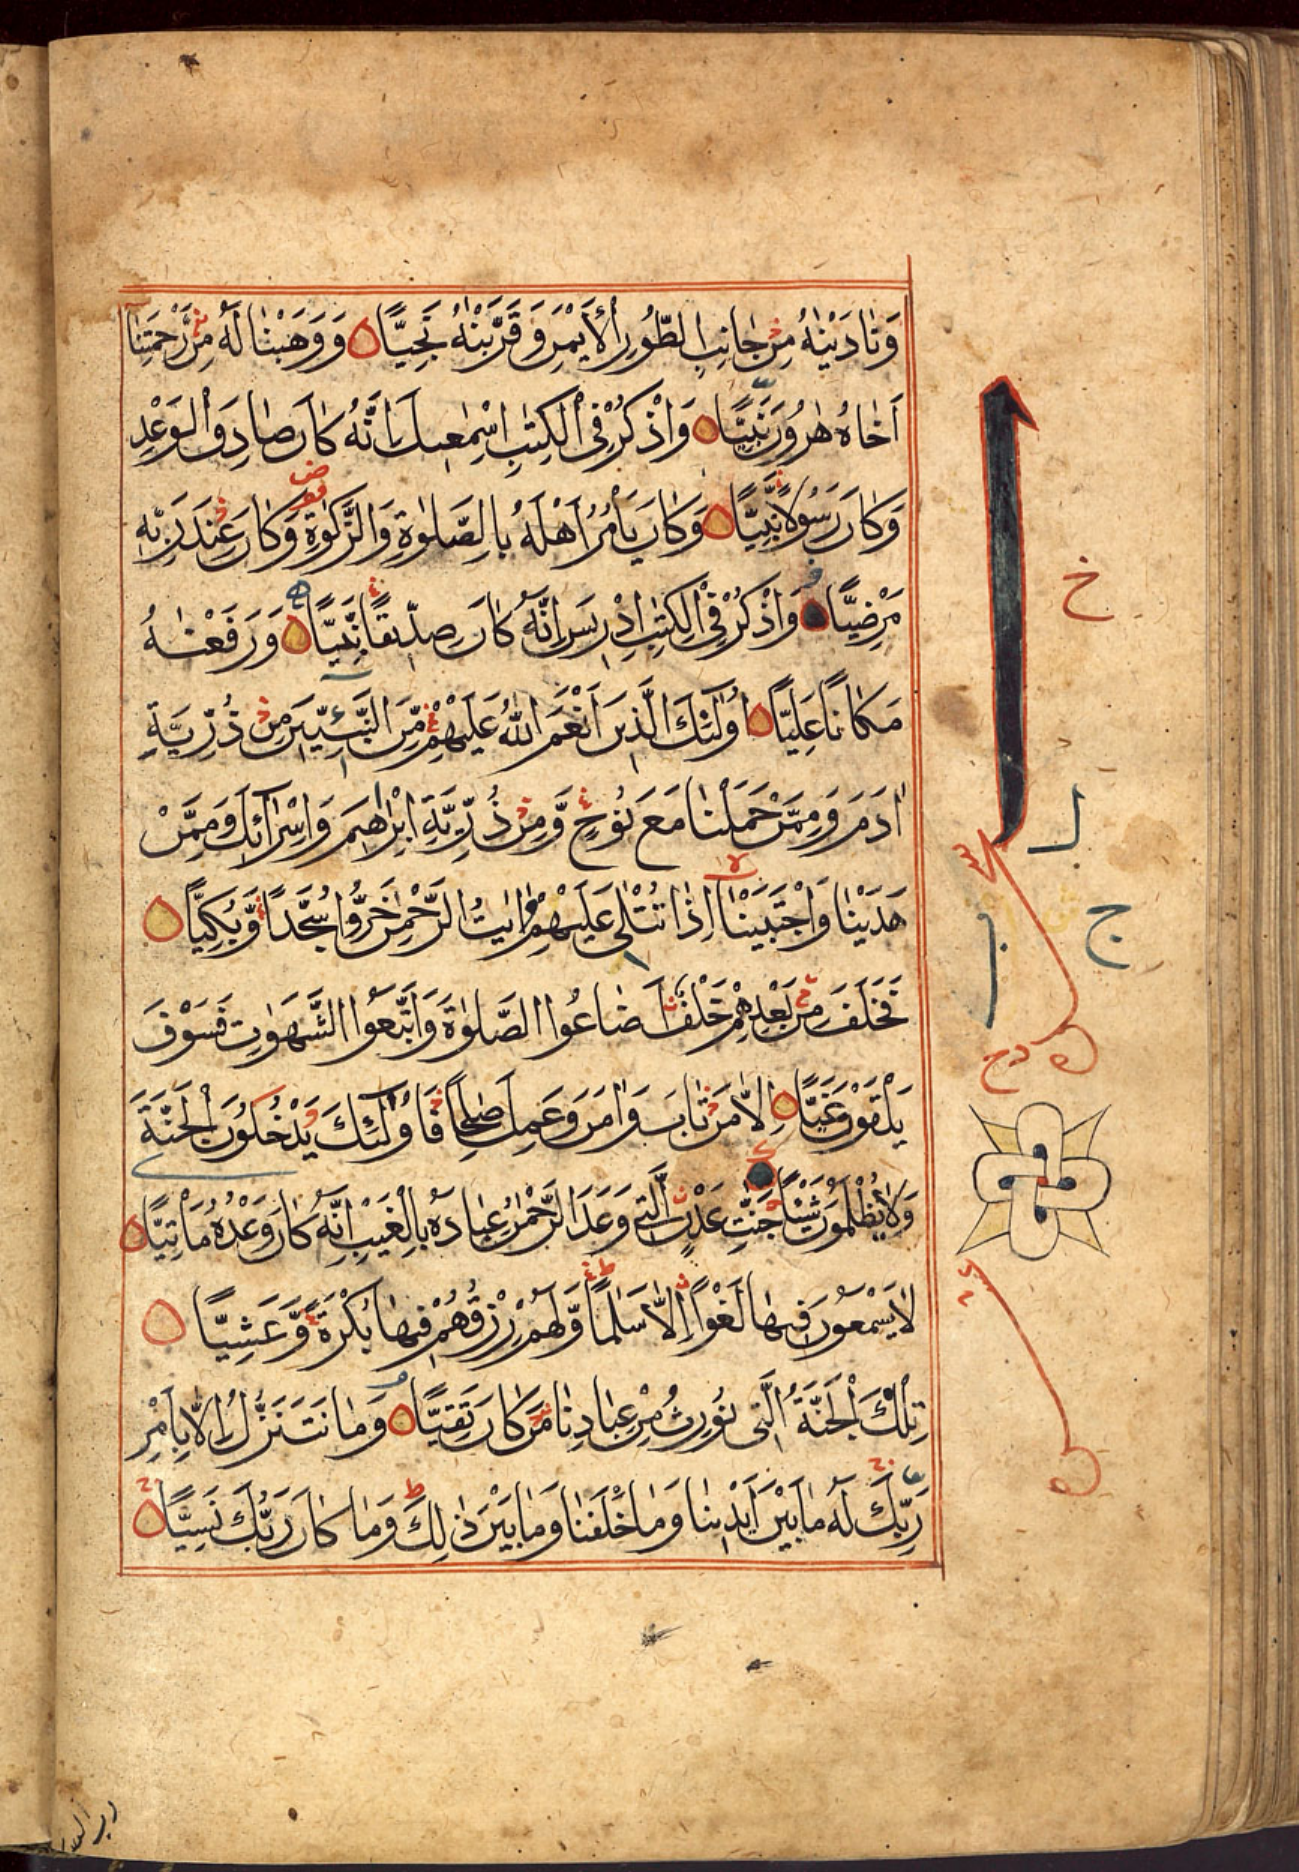 وَنَادَيْنٰهُ مِنْ جَانِبِ الطُّورِ الْاَيْمَنِ وَقَرَّبْنٰهُ نَجِيًّا وَوَهَبْنَا لَهُ مِنْ رَحْمَتِنَا
اَخَاهُ هٰرُونَ نَبِيًّا وَاذْكُرْ فِى الْكِتٰبِ اِسْمٰعِيلَ اِنَّهُ كَانَ صَادِقَ الْوَعْدِ
وَكَانَ رَسُولًا نَبِيًّا وَكَانَ يَأْمُرُ اَهْلَهُ بِالصَّلٰوةِ وَالزَّكٰوةِ وَكَانَ عِنْدَ رَبِّهِ
مَرْضِيًّا وَاذْكُرْ فِى الْكِتٰبِ اِدْرِيسَ اِنَّهُ كَانَ صِدِّيقًا نَبِيًّا وَرَفَعْنٰهُ
مَكَانًا عَلِيًّا اُولٰئِكَ الَّذِينَ اَنْعَمَ اللّٰهُ عَلَيْهِمْ مِّنَ النَّبِيِّينَ مِنْ ذُرِّيَّةِ
اٰدَمَ وَمِمَّنْ حَمَلْنَا مَعَ نُوحٍ وَّمِنْ ذُرِّيَّةِ اِبْرٰهِيمَ وَاِسْرَآئِلَ وَمِمَّنْ
هَدَيْنَا وَاجْتَبَيْنَا اِذَا تُتْلٰى عَلَيْهِمْ اٰيٰتُ الرَّحْمٰنِ خَرُّوا سُجَّدًا وَّبُكِيًّا
فَخَلَفَ مِنْ بَعْدِهِمْ خَلْفٌ اَضَاعُوا الصَّلٰوةَ وَاتَّبَعُوا الشَّهَوٰتِ فَسَوْفَ
يَلْقَوْنَ غَيًّا اِلَّا مَنْ تَابَ وَاٰمَنَ وَعَمِلَ صٰلِحًا فَاُولٰئِكَ يَدْخُلُونَ الْجَنَّةَ
وَلَا يُظْلَمُونَ شَيْئًا جَنّٰتِ عَدْنٍ الَّتِى وَعَدَ الرَّحْمٰنُ عِبَادَهُ بِالْغَيْبِ اِنَّهُ كَانَ وَعْدُهُ مَأْتِيًّا
لَا يَسْمَعُونَ فِيهَا لَغْوًا اِلَّا سَلٰمًا وَّلَهُمْ رِزْقُهُمْ فِيهَا بُكْرَةً وَّعَشِيًّا
تِلْكَ الْجَنَّةُ الَّتِى نُورِثُ مِنْ عِبَادِنَا مَنْ كَانَ تَقِيًّا وَمَا نَتَنَزَّلُ اِلَّا بِاَمْرِ
رَبِّكَ لَهُ مَا بَيْنَ اَيْدِينَا وَمَا خَلْفَنَا وَمَا بَيْنَ ذٰلِكَ وَمَا كَانَ رَبُّكَ نَسِيًّا